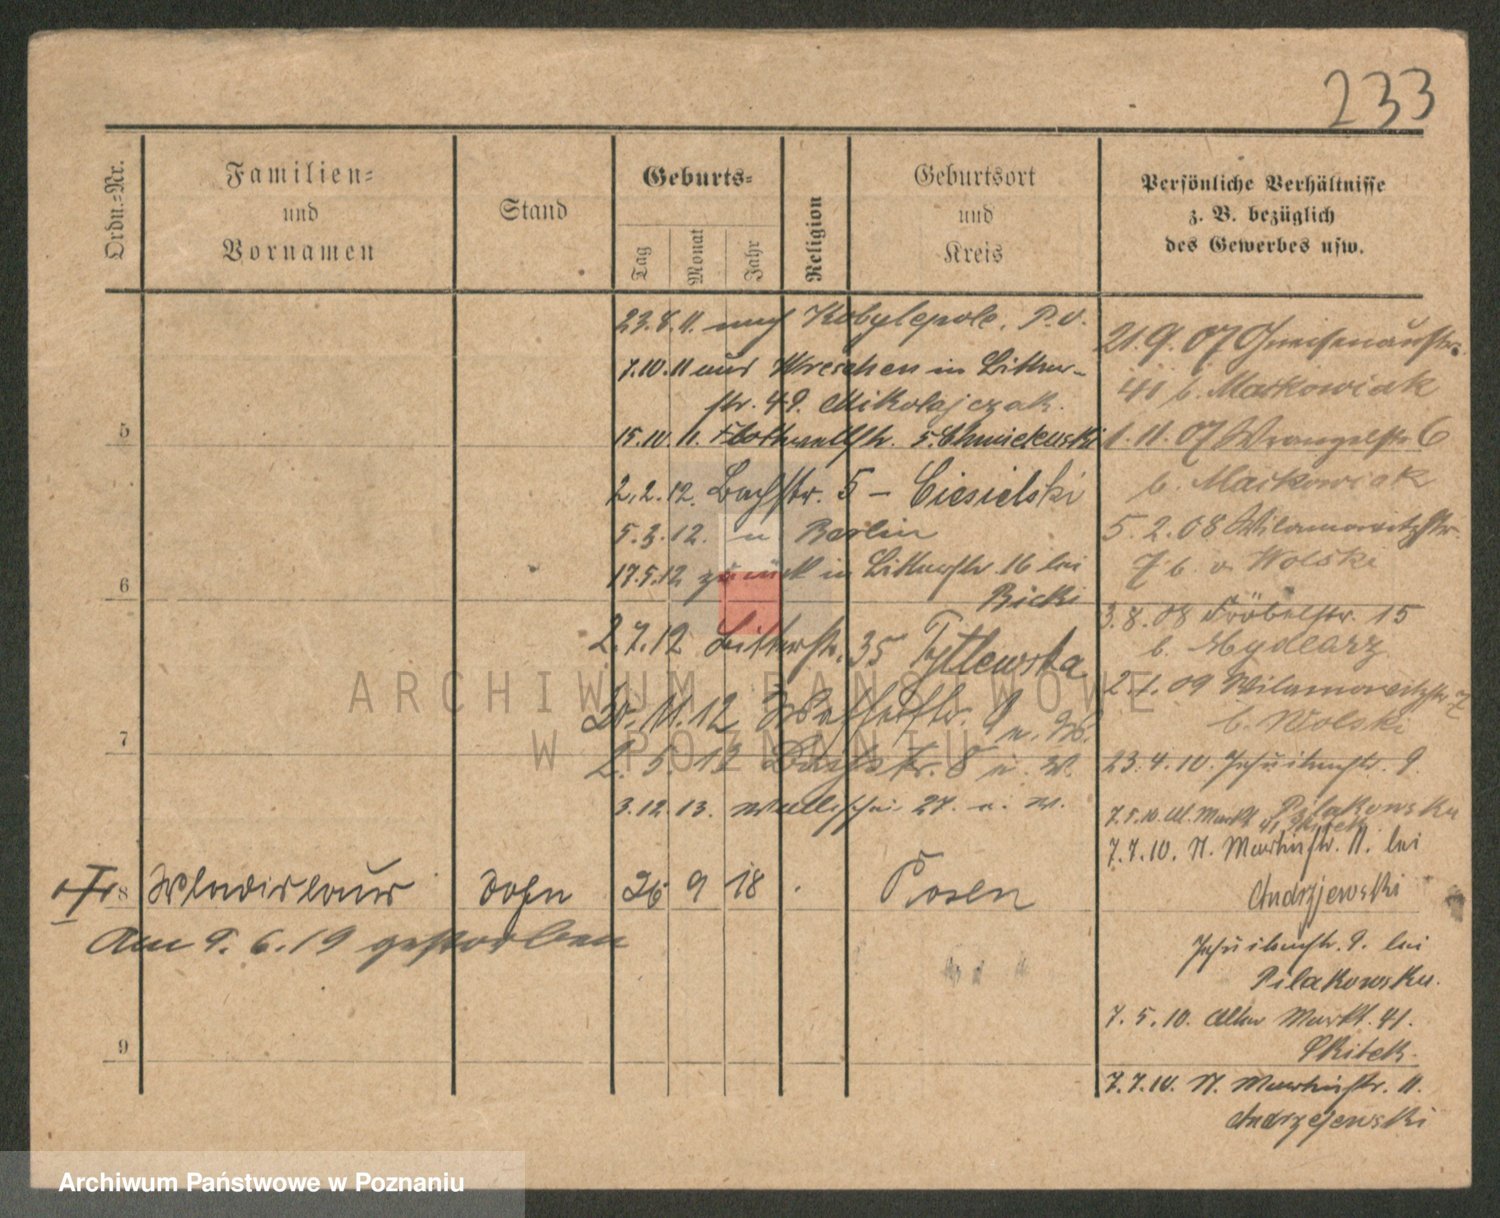 233
Ordn.-Nr.
Familien-
und
Vornamen
Stand
Geburts-
Tag
Monat
Jahr
Religion
Geburtsort
und
Kreis
Persönliche Verhältnisse
z. B. bezüglich
des Gewerbes usw.
23.8.11. nach Kobylepole. P.O.
7.10.11 aus Wreschen in Bitter-
str. 49. Mikolajczak.
5
15.10.11. Flottwellstr. 5.
2.2.12. Bachstr. 5 – Ciesielski
5.3.12. n Berlin
17.5.12 zurück in 16 bei
6
Bicki
2.7.12 35 Tytlewska
11.12 9
7
8
3.12.13. Wallischei 27.
8
Wladislaus
Sohn
26
9
18
Posen
Am 9.6.19 gestorben
9
21.9.07 Gneisenaustr.
41 b. Markowiak
1.11.07 Wrangelstr 6
b. Markowiak
5.2.08 Wilamowitzstr.
7 b. v. Wolski
3.8.08 Fröbelstr. 15
b. Mydlarz
2.1.09 Wilamowitzstr 7
b. Wolski
23.4.10. Jesuitenstr. 9.
Pilakowska
7.5.10. Al. Markt 41 Skitek
7.7.10. St. Martinstr. 11. bei
Andrzejewski
Jesuitenstr. 9. bei
Pilakowska.
7.5.10. Alter Markt. 41.
Skitek.
7.7.10. St. Martinstr. 11.
Andrzejewski
ARCHIWUM PAŃSTWOWE
W POZNANIU
Archiwum Państwowe w Poznaniu